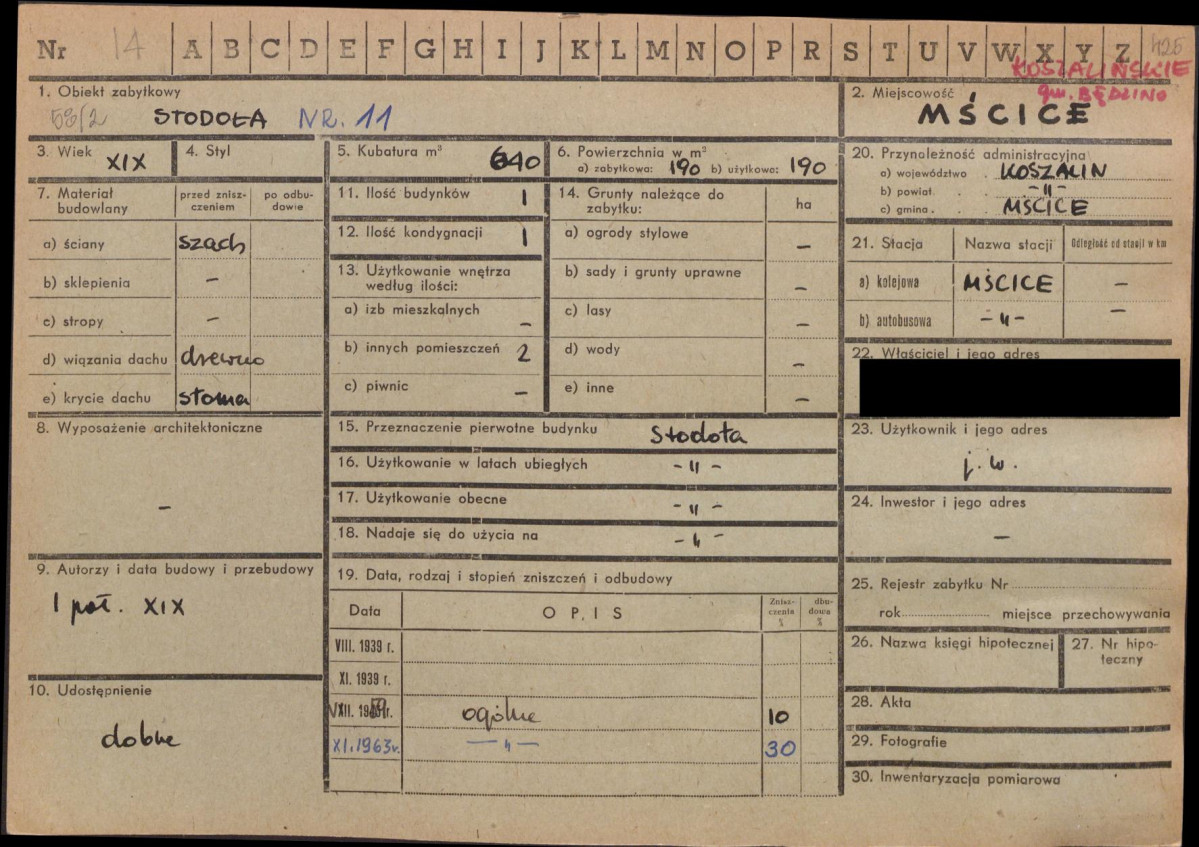 Nr 14 A B C D E F G H I J K L M N O P R S T U V W X Y Z 425
KOSZALIŃSKIE
gm. BĘDZINO
1. Obiekt zabytkowy
53/2 STODOŁA NR. 11
2. Miejscowość
MŚCICE
3. Wiek XIX
4. Styl
5. Kubatura m³ 640
6. Powierzchnia w m²
a) zabytkowa: 190 b) użytkowa: 190
7. Materiał budowlany
przed zniszczeniem
po odbudowie
a) ściany szach
b) sklepienia –
c) stropy –
d) wiązania dachu drewno
e) krycie dachu słoma
8. Wyposażenie architektoniczne
–
9. Autorzy i data budowy i przebudowy
I poł. XIX
10. Udostępnienie
dobre
11. Ilość budynków 1
12. Ilość kondygnacji 1
13. Użytkowanie wnętrza
według ilości:
a) izb mieszkalnych –
b) innych pomieszczeń 2
c) piwnic –
14. Grunty należące do
zabytku:
ha
a) ogrody stylowe –
b) sady i grunty uprawne –
c) lasy –
d) wody –
e) inne –
15. Przeznaczenie pierwotne budynku stodoła
16. Użytkowanie w latach ubiegłych -"-
17. Użytkowanie obecne -"-
18. Nadaje się do użycia na -"-
19. Data, rodzaj i stopień zniszczeń i odbudowy
Data OPIS Zniszczenia % dbudowa %
VIII. 1939 r.
XI. 1939 r.
ogólne 10
XI. 1963 r. -"- 30
20. Przynależność administracyjna
a) województwo KOSZALIN
b) powiat. -"-
c) gmina. MŚCICE
21. Stacja Nazwa stacji Odległość od stacji w km
a) kolejowa MŚCICE –
b) autobusowa -"- –
22. Właściciel i jego adres
23. Użytkownik i jego adres
j. w.
24. Inwestor i jego adres
–
25. Rejestr zabytku Nr
rok miejsce przechowywania
26. Nazwa księgi hipotecznej
27. Nr hipoteczny
28. Akta
29. Fotografie
30. Inwentaryzacja pomiarowa